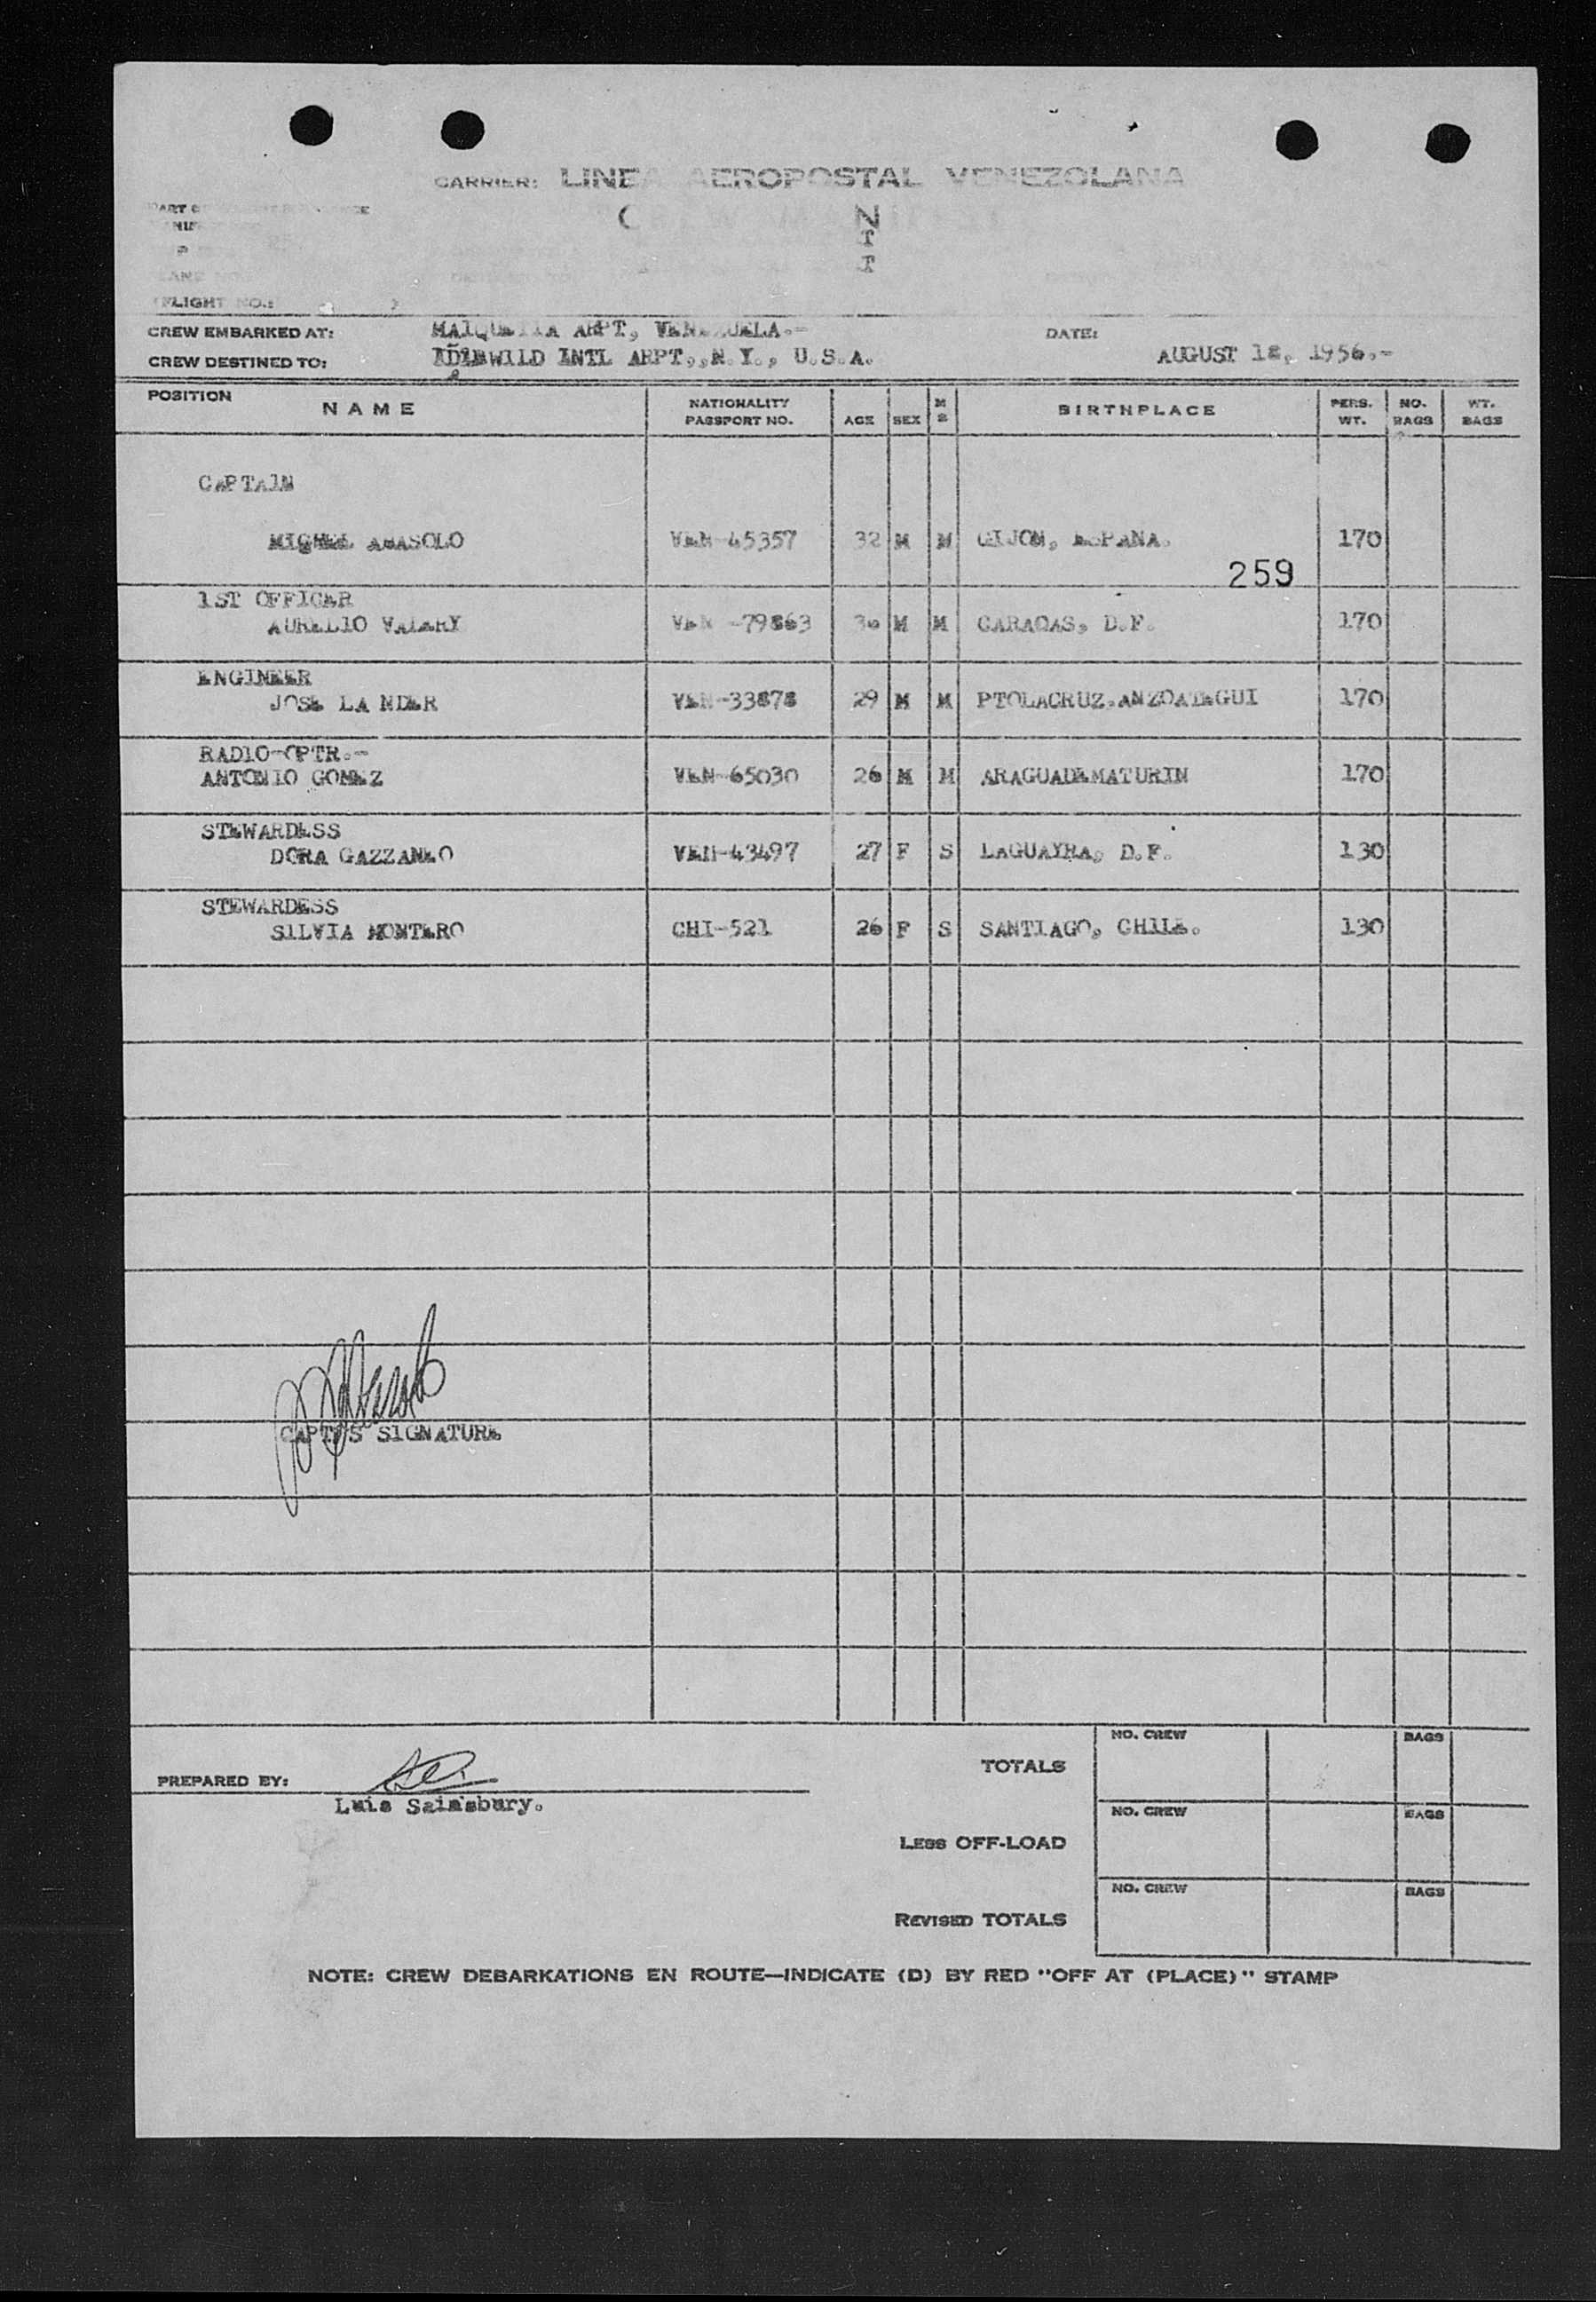 CARRIER: LINEA AEROPOSTAL VENEZOLANA
FLIGHT NO.:
CREW EMBARKED AT: MAIQUETIA ARPT, VENEZUELA.-
DATE:
CREW DESTINED TO: IDLEWILD INTL ARPT,,N.Y., U.S.A.
AUGUST 12, 1956.-
POSITION NAME NATIONALITY PASSPORT NO. AGE SEX M S BIRTHPLACE PERS. WT. NO. BAGS WT. BAGS
CAPTAIN
MIGUEL AMASOLO VEN-45357 32 M M GIJON, ESPANA. 170
259
1ST OFFICER
AURELIO VALERY VEN -79863 36 M M CARACAS, D.F. 170
ENGINEER
JOSE LA NDER VEN-33878 29 M M PTOLACRUZ.ANZOATEGUI 170
RADIO-OPTR.-
ANTONIO GOMEZ VEN-65030 26 M M ARAGUADEMATURIN 170
STEWARDESS
DORA GAZZANEO VEN-43497 27 F S LAGUAYRA, D.F. 130
STEWARDESS
SILVIA MONTERO CHI-521 26 F S SANTIAGO, CHILE. 130
CAPT'S SIGNATURE
NO. CREW BAGS
TOTALS
PREPARED BY:
Luis Sainsbury.
NO. CREW BAGS
LESS OFF-LOAD
NO. CREW BAGS
REVISED TOTALS
NOTE: CREW DEBARKATIONS EN ROUTE—INDICATE (D) BY RED "OFF AT (PLACE)" STAMP